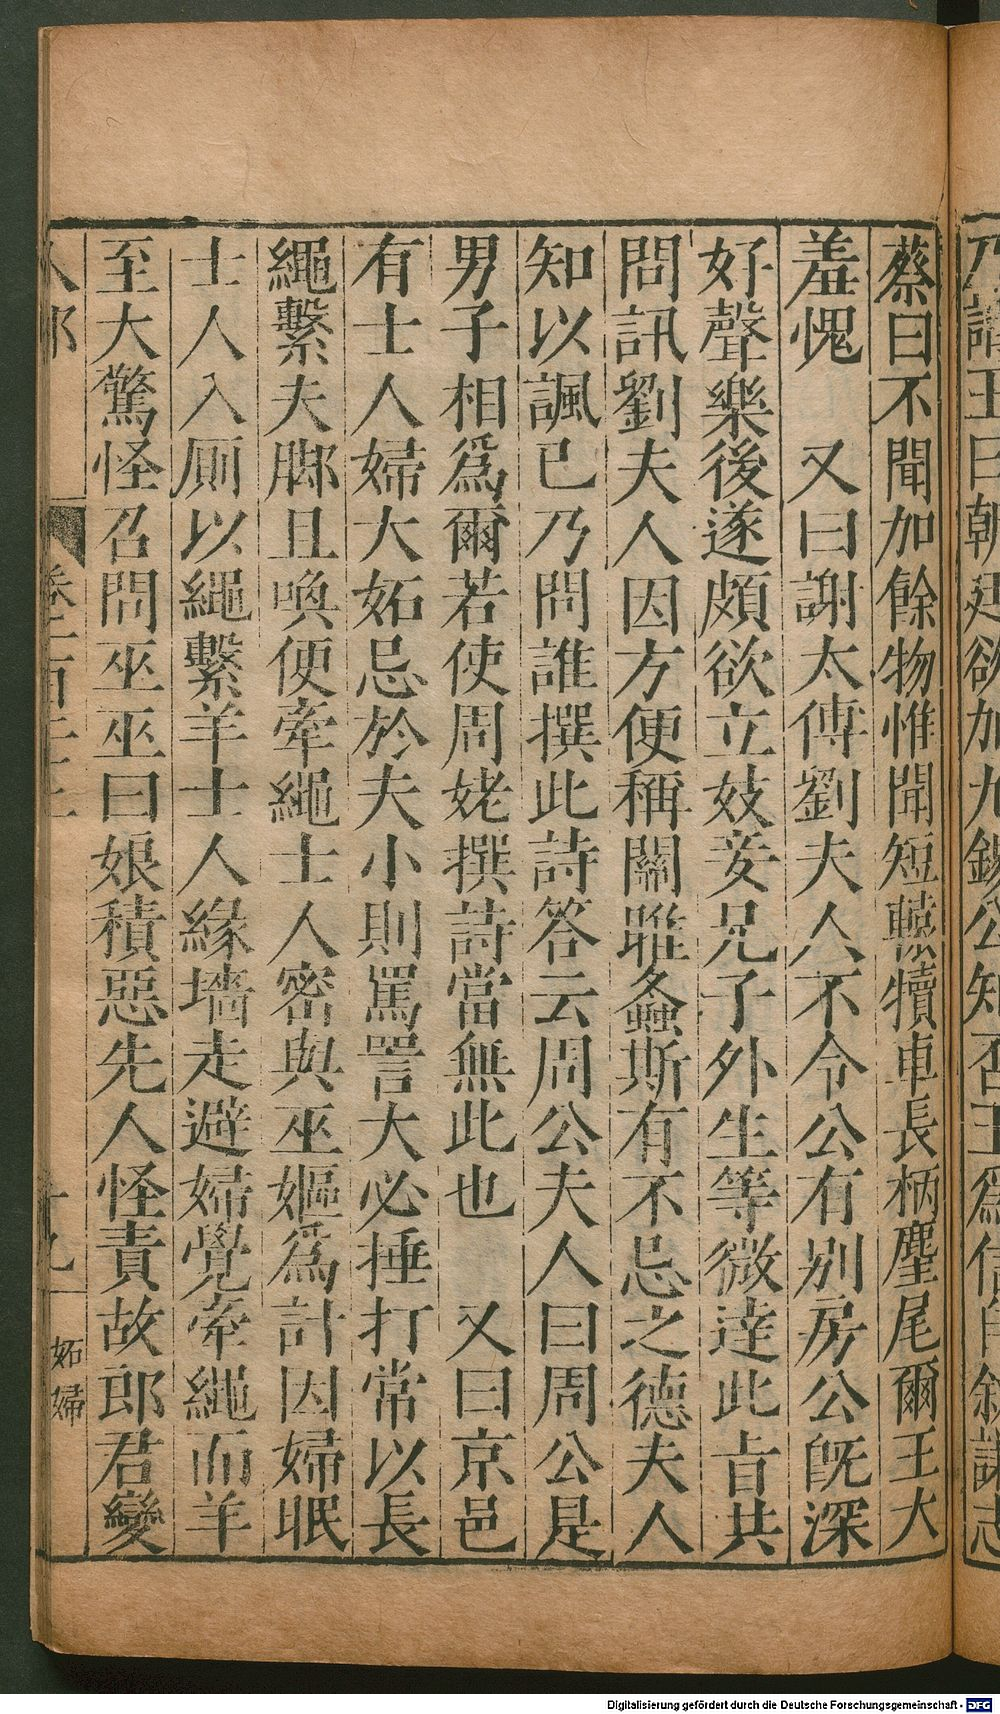 蔡曰不聞加餘物惟聞短轅犢車長柄麈尾爾王大
羞愧　又曰謝太傅劉夫人不令公有別房公旣深
好聲樂後遂頗欲立妓妾兄子外生等微達此旨共
問訊劉夫人因方便稱關雎螽斯有不忌之德夫人
知以諷已乃問誰撰此詩答云周公夫人曰周公是
男子相爲爾若使周姥撰詩當無此也　又曰京邑
有士人婦大妬忌於夫小則罵詈大必捶打常以長
繩繫夫脚且喚便牽繩士人密與巫嫗爲計因婦眠
士人入厠以繩繫羊士人緣墻走避婦覺牽繩而羊
至大驚怪召問巫巫曰娘積惡先人怪責故郎君變
妬婦
Digitalisierung gefördert durch die Deutsche Forschungsgemeinschaft - DFG